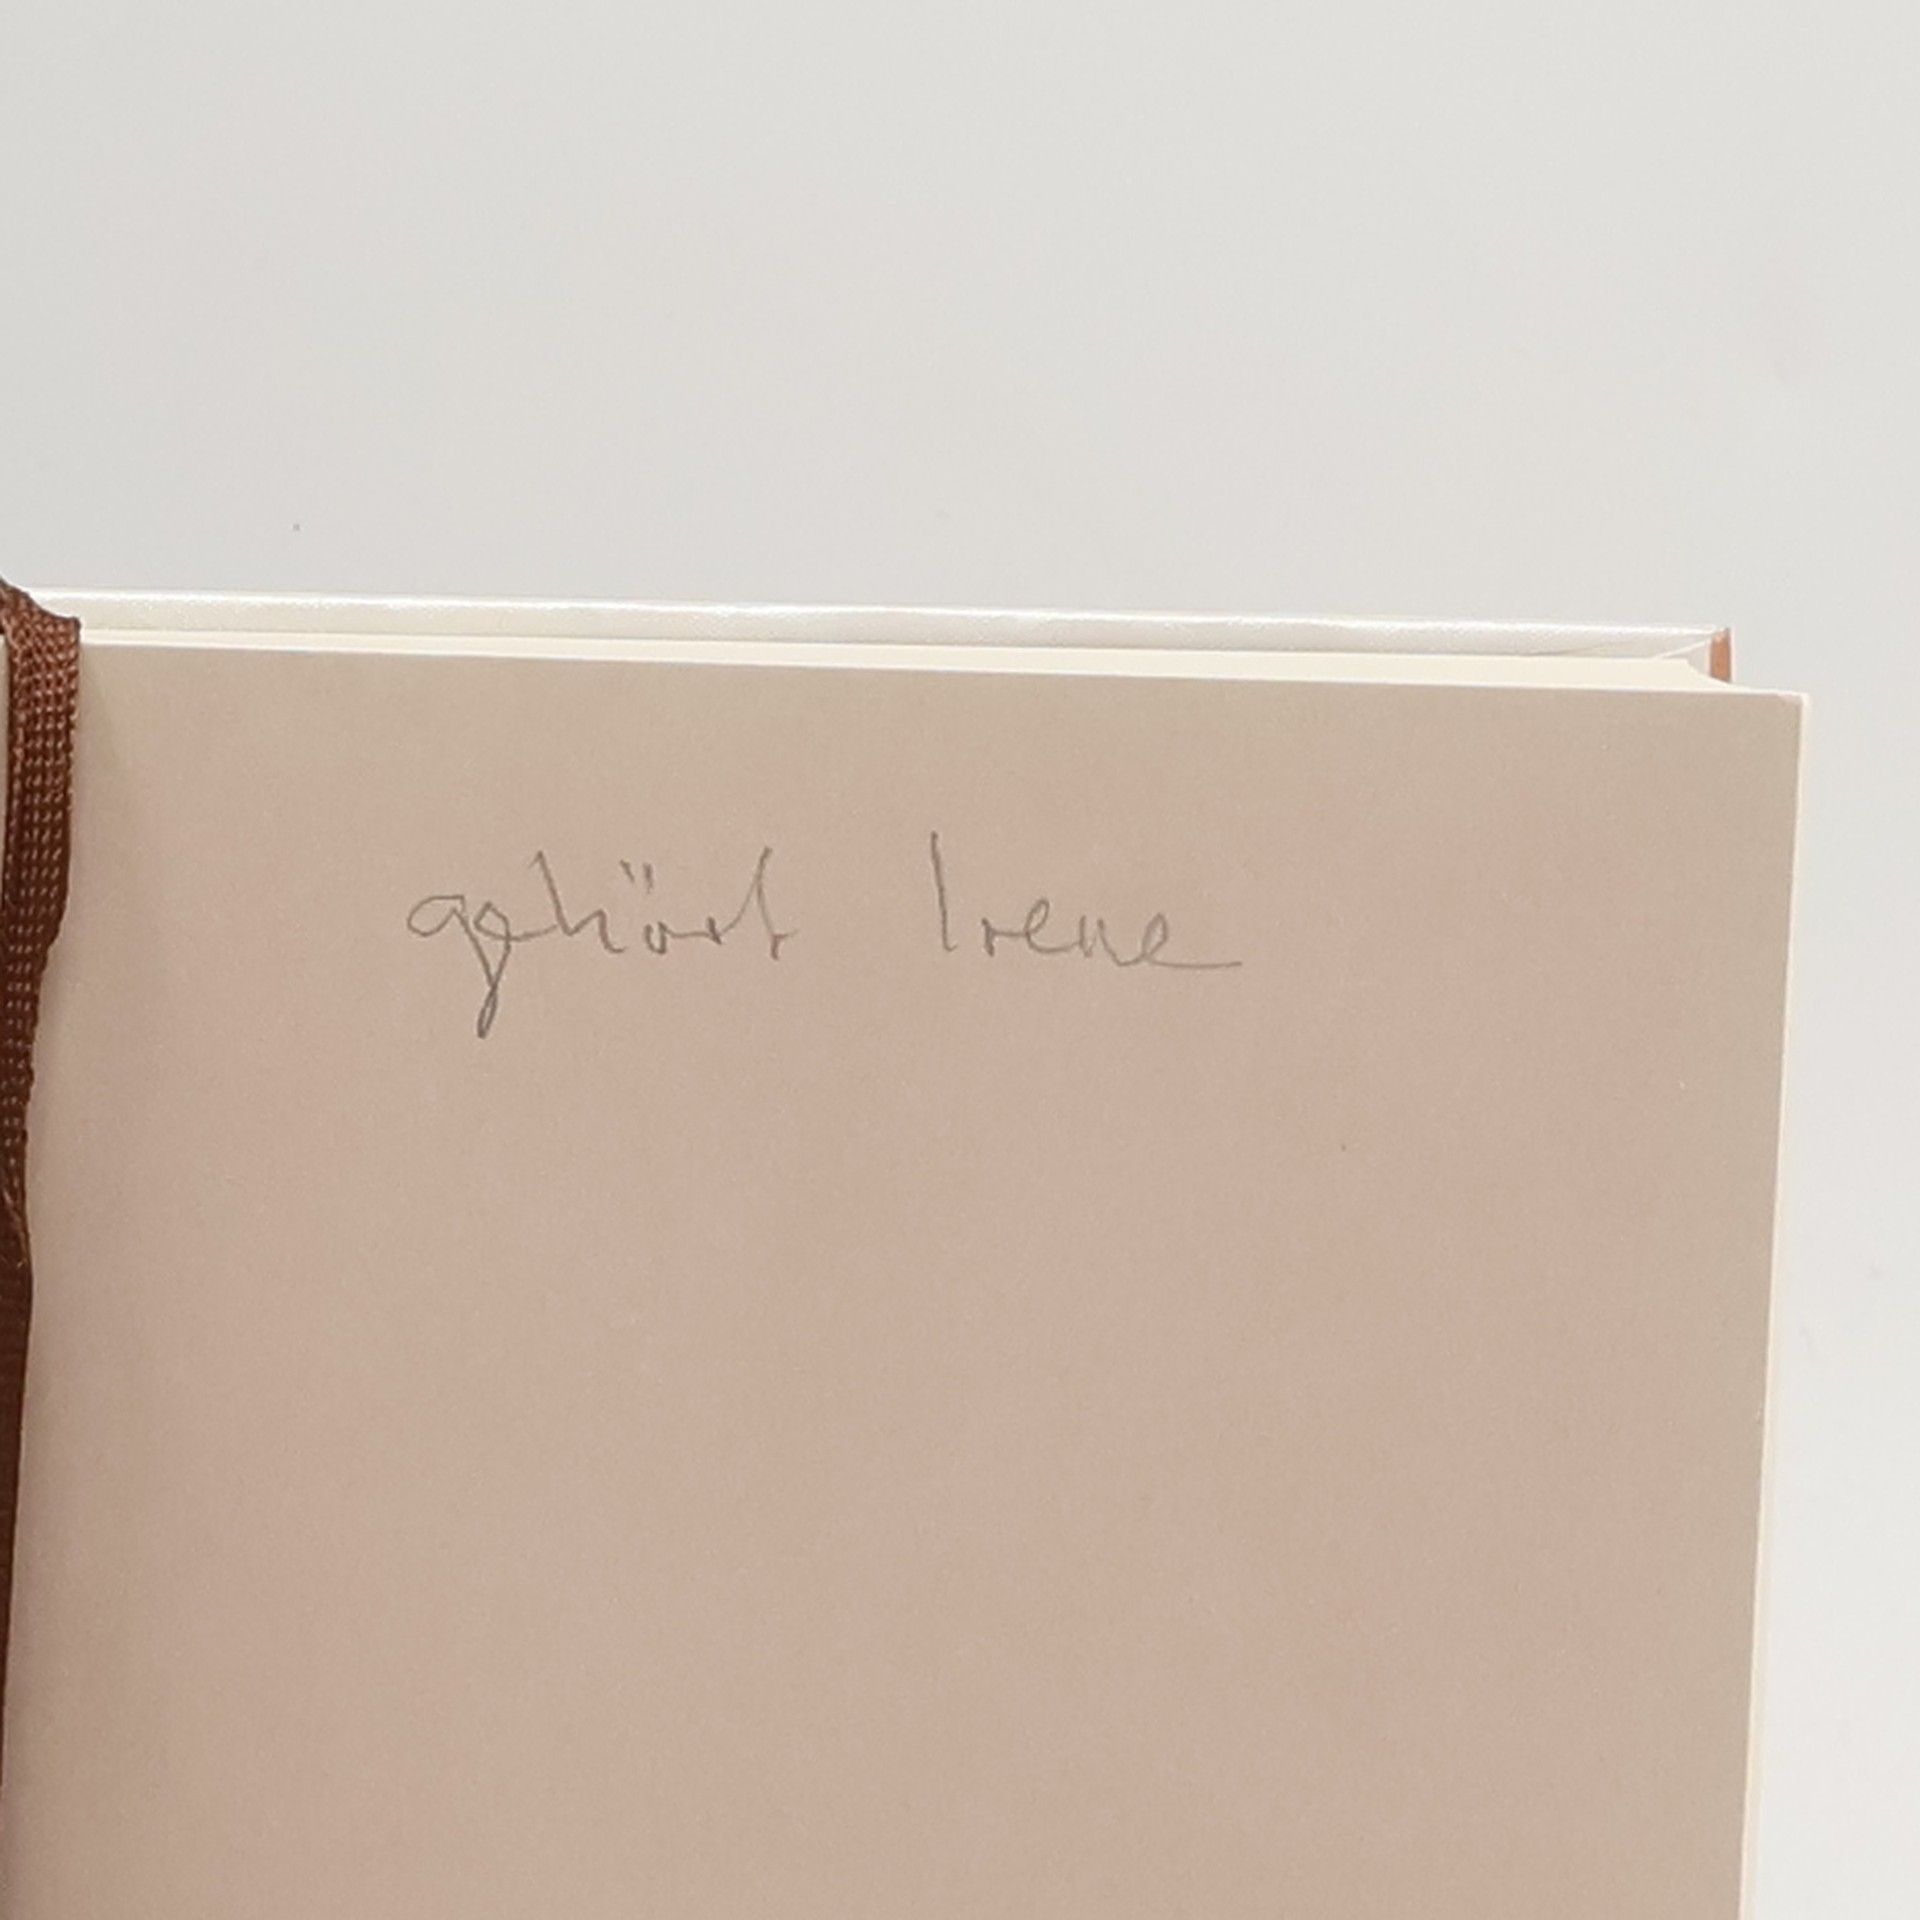 gehört Irene